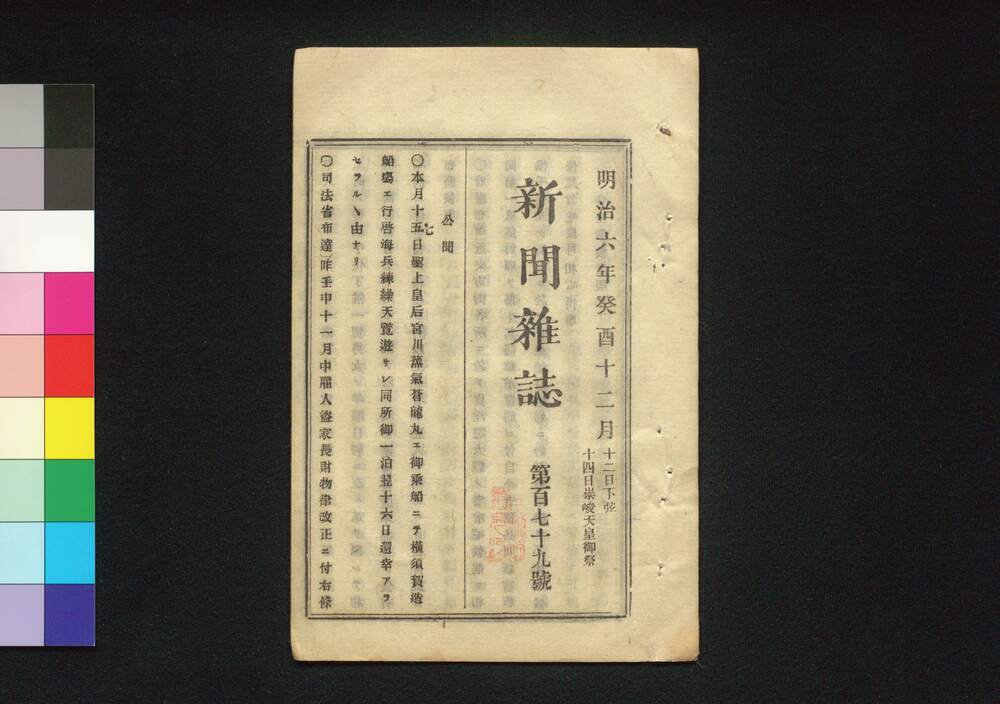 明治六年癸酉十二月
十二日下弦
十四日崇峻天皇御祭
新聞雜誌
第百七十九號
公聞
〇本月十五日聖上皇后宮川蒸氣蒼龍丸ェ御乘船ニテ橫須賀造
七
船塲ェ行啓海兵練繰天覽遊サレ同所御一泊翌十六日還幸アラ
セラルヽ由ナリ
〇司法省布達〕昨壬申十一月中雇人盜家長財物律改正ニ付右條